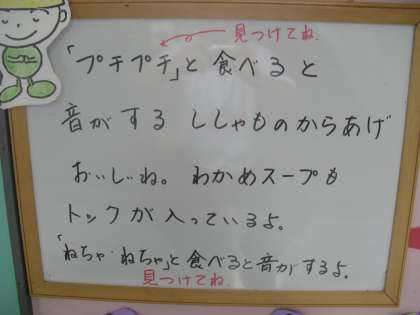 見つけてね.
「プチプチ」と食べると
音がする ししゃものからあげ
おいしいね。 わかめスープも
トックが入っているよ。
「ねちゃ・ねちゃ」と食べると音がするよ。
見つけてね.